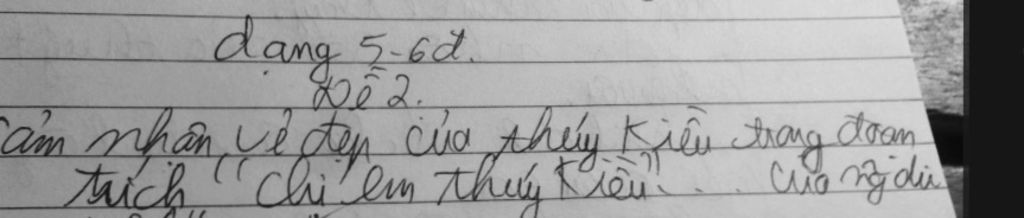 dạng 5-6đ.
Đề 2.
Cảm nhân vẻ đẹp của thúy Kiều trong đoạn
trích "Chị em thúy Kiều". của ng du